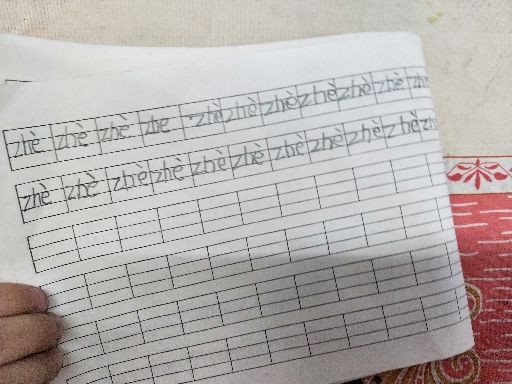 zhè zhè zhè zhe zhè zhè zhè zhè zhè zhè zh
zhè zhè zhè zhè zhè zhè zhè zhè zhè zhè zh